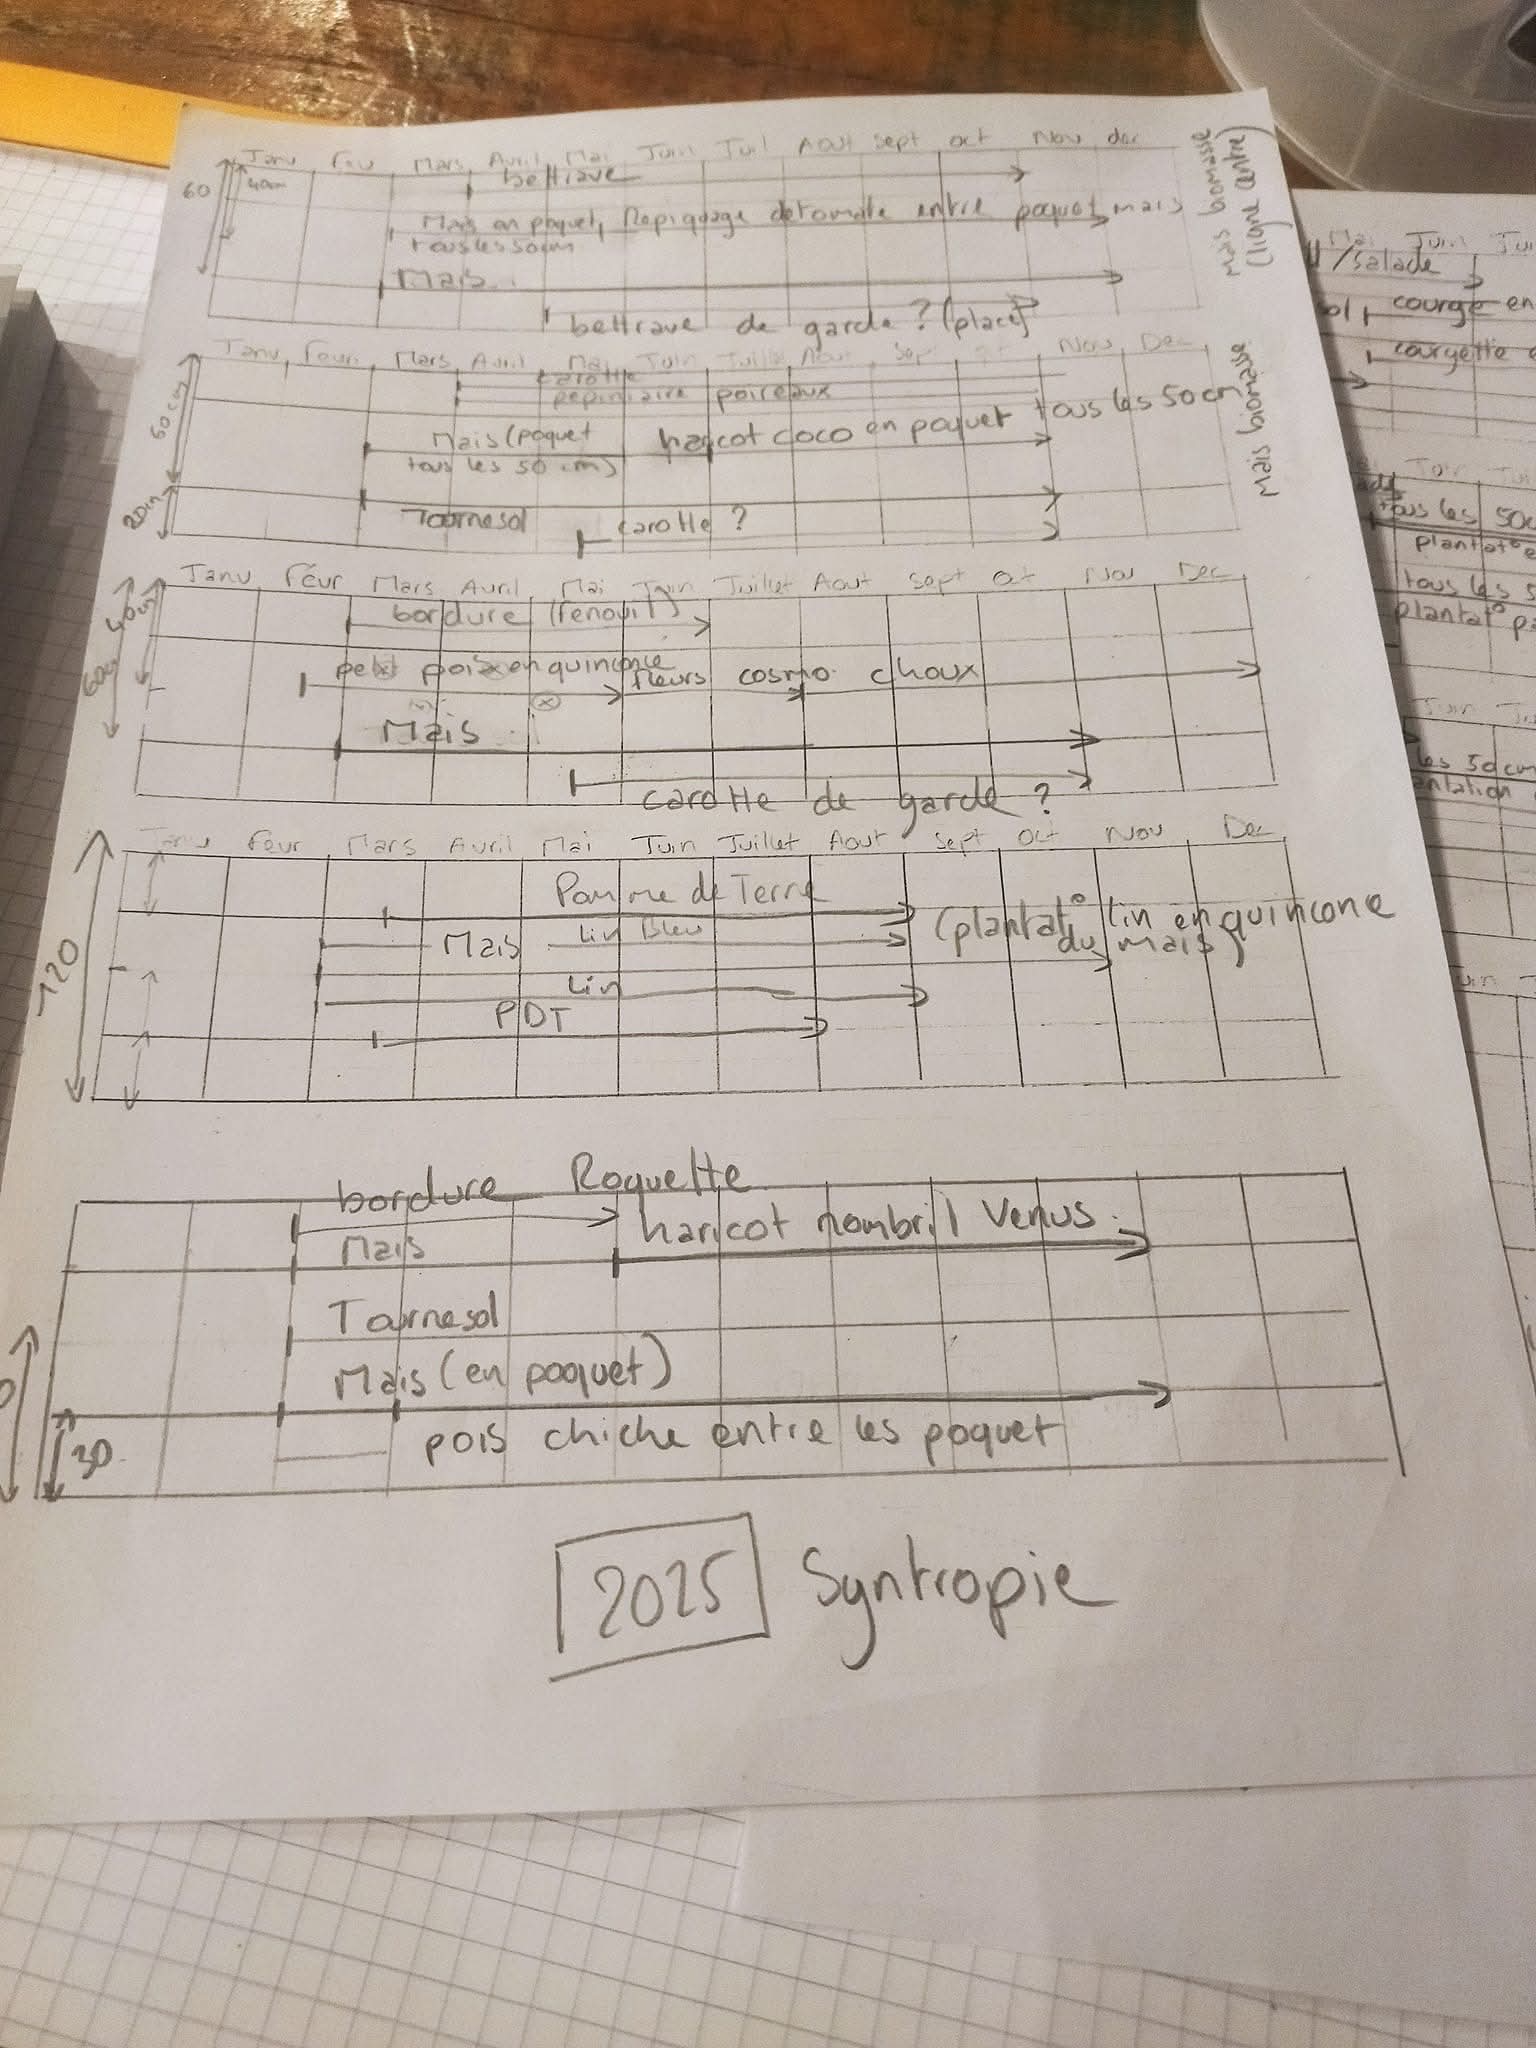 Janv Fev Mars Avril Mai Juin Juil Aout Sept oct Nov dec
60 40cm
bettrave
Mais en poquet, Repiquage de tomate entre poquet mais
tous les 50cm
Mais
bettrave de garde ? (place)
(ligne entière)
Mais
Janv Fevr Mars Avril Mai Juin Juillet Aout Sept oct Nov Dec
60 cm
carotte
pepiniaire poireaux
Mais (poquet haricot coco en poquet tous les 50 cm
tous les 50 cm)
Tournesol carotte ?
Mais
Janv Févr Mars Avril Mai Juin Juillet Aout Sept Oct Nov Dec
40cm
bordure (fenouil)
petit pois en quinconce fleurs cosmo choux
Mais
carotte de garde ?
Janv Fevr Mars Avril Mai Juin Juillet Aout Sept Oct Nov Dec
120
Pomme de Terre
Mais Lin Bleu (plantat° lin en quincone
du mais)
Lin
PDT
bordure Roquette
Mais haricot nombril Venus
Tournesol
Mais (en poquet)
30
pois chiche entre les poquet
2025 Syntropie
Mai Juin
/salade
courge en
courgette
Juin
tous les 50c
plantat°
tous les 5
plantat°
Juin
les 50cm